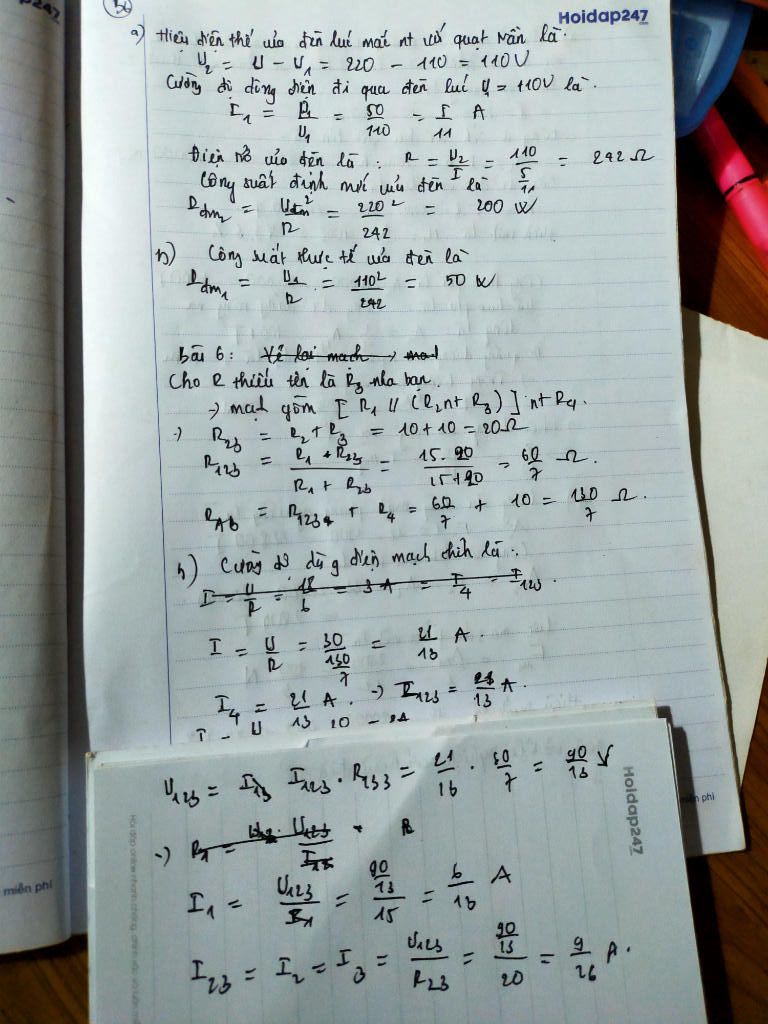 Hoidap247
a) Hiệu điện thế của đèn lúc mắc nt với quạt trần là:
U₂ = U - U₁ = 220 - 110 = 110V
Cường độ dòng điện đi qua đèn lúc U = 110V là:
I₁ = P₁/U₁ = 50/110 = 5/11 A
Điện trở của đèn là: R = U₂/I = 110/(5/11) = 242 Ω
Công suất định mức của đèn là
Pđm₂ = Uđm²/R = 220²/242 = 200 W
b) Công suất thực tế của đèn là
Pđm₁ = U₁/R = 110²/242 = 50 W
Bài 6: Vẽ lại mạch →
Cho R thiếu tên là R₃ nha bạn.
→ mạch gồm [R₁ // (R₂ nt R₃)] nt R₄.
→ R₂₃ = R₂ + R₃ = 10 + 10 = 20Ω
R₁₂₃ = (R₁ + R₂₃)/(R₁ + R₂₃) = (15.20)/(15+20) = 60/7 Ω.
R_AB = R₁₂₃ + R₄ = 60/7 + 10 = 130/7 Ω.
b) Cường độ dòng điện mạch chính là:
I = U/R = 18/6 = 3A = I₄ = I₁₂₃.
I = U/R = 30/(130/7) = 21/13 A.
I₄ = 21/13 A. → I₁₂₃ = 21/13 A.
U₁₂₃ = I₁₃ I₁₂₃ . R₁₂₃ = 21/13 . 30/7 = 90/13 V
→ R₁ = U₁₂₃
I₁ = U₁₂₃/R₁ = (90/13)/15 = 6/13 A
I₂₃ = I₂ = I₃ = U₁₂₃/R₂₃ = (90/13)/20 = 9/26 A.
Hoidap247
miễn phí
miễn phí